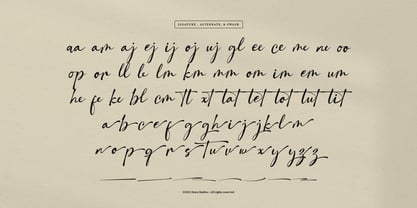 LIGATURE , ALTERNATE, & SWASH
aa am aj ej ij oj uj gl ee ce me ne oo
op or ll il lm km mm om im em um
he fe ke bl cm tt xt tat tet tot tut tit
a b c e f g h i j k l m
n o p q r s t u v w x y y z z